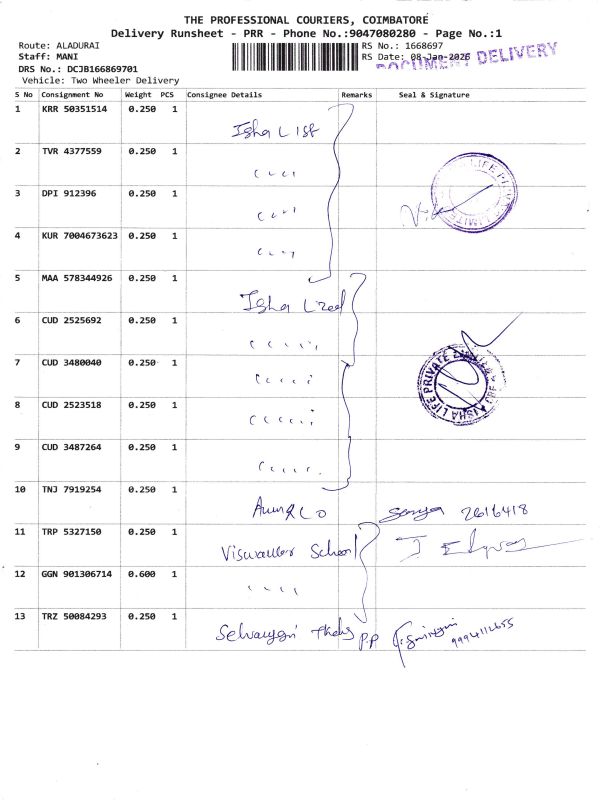 THE PROFESSIONAL COURIERS, COIMBATORE
Delivery Runsheet - PRR - Phone No.:9047080280 - Page No.:1
Route: ALADURAI
Staff: MANI
DRS No.: DCJB166869701
Vehicle: Two Wheeler Delivery
RS No.: 1668697
RS Date: 08-Jan-2026
DOCUMENT DELIVERY
S No Consignment No Weight PCS Consignee Details Remarks Seal & Signature
1 KRR 50351514 0.250 1
Isha L
2 TVR 4377559 0.250 1
3 DPI 912396 0.250 1
4 KUR 7004673623 0.250 1
5 MAA 578344926 0.250 1
Isha
6 CUD 2525692 0.250 1
7 CUD 3480040 0.250 1
8 CUD 2523518 0.250 1
9 CUD 3487264 0.250 1
ISHA LIFE PRIVATE
10 TNJ 7919254 0.250 1
2616418
11 TRP 5327150 0.250 1
School
12 GGN 901306714 0.600 1
13 TRZ 50084293 0.250 1
P.P